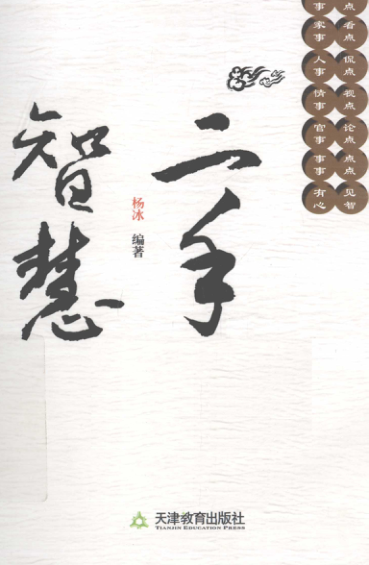 点
看点
侃点
视点
论点
点点
见智
事
家事
人事
情事
官事
事事
有心
二手
智慧
杨冰 编著
天津教育出版社
TIANJIN EDUCATION PRESS